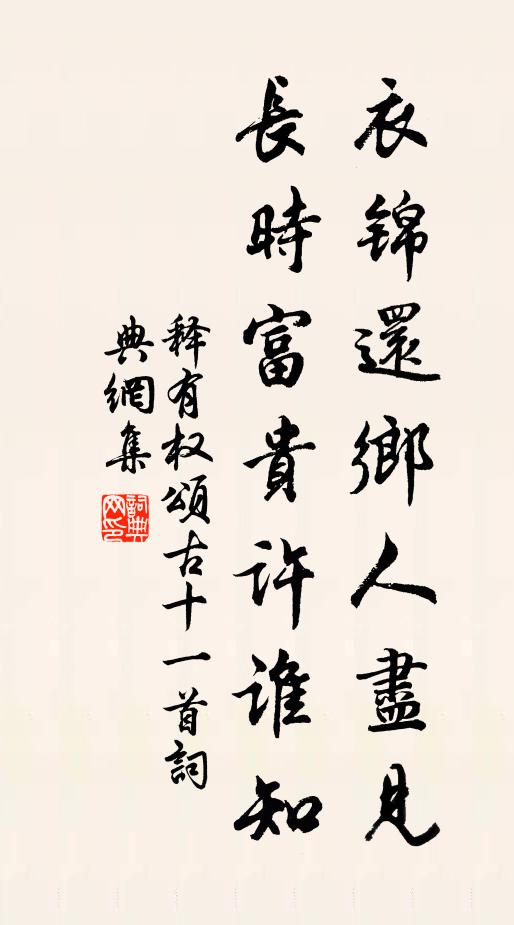 衣锦還鄉人盡見
長時富貴許誰知
释有权頌古十一首詞
典網集
詞典網印